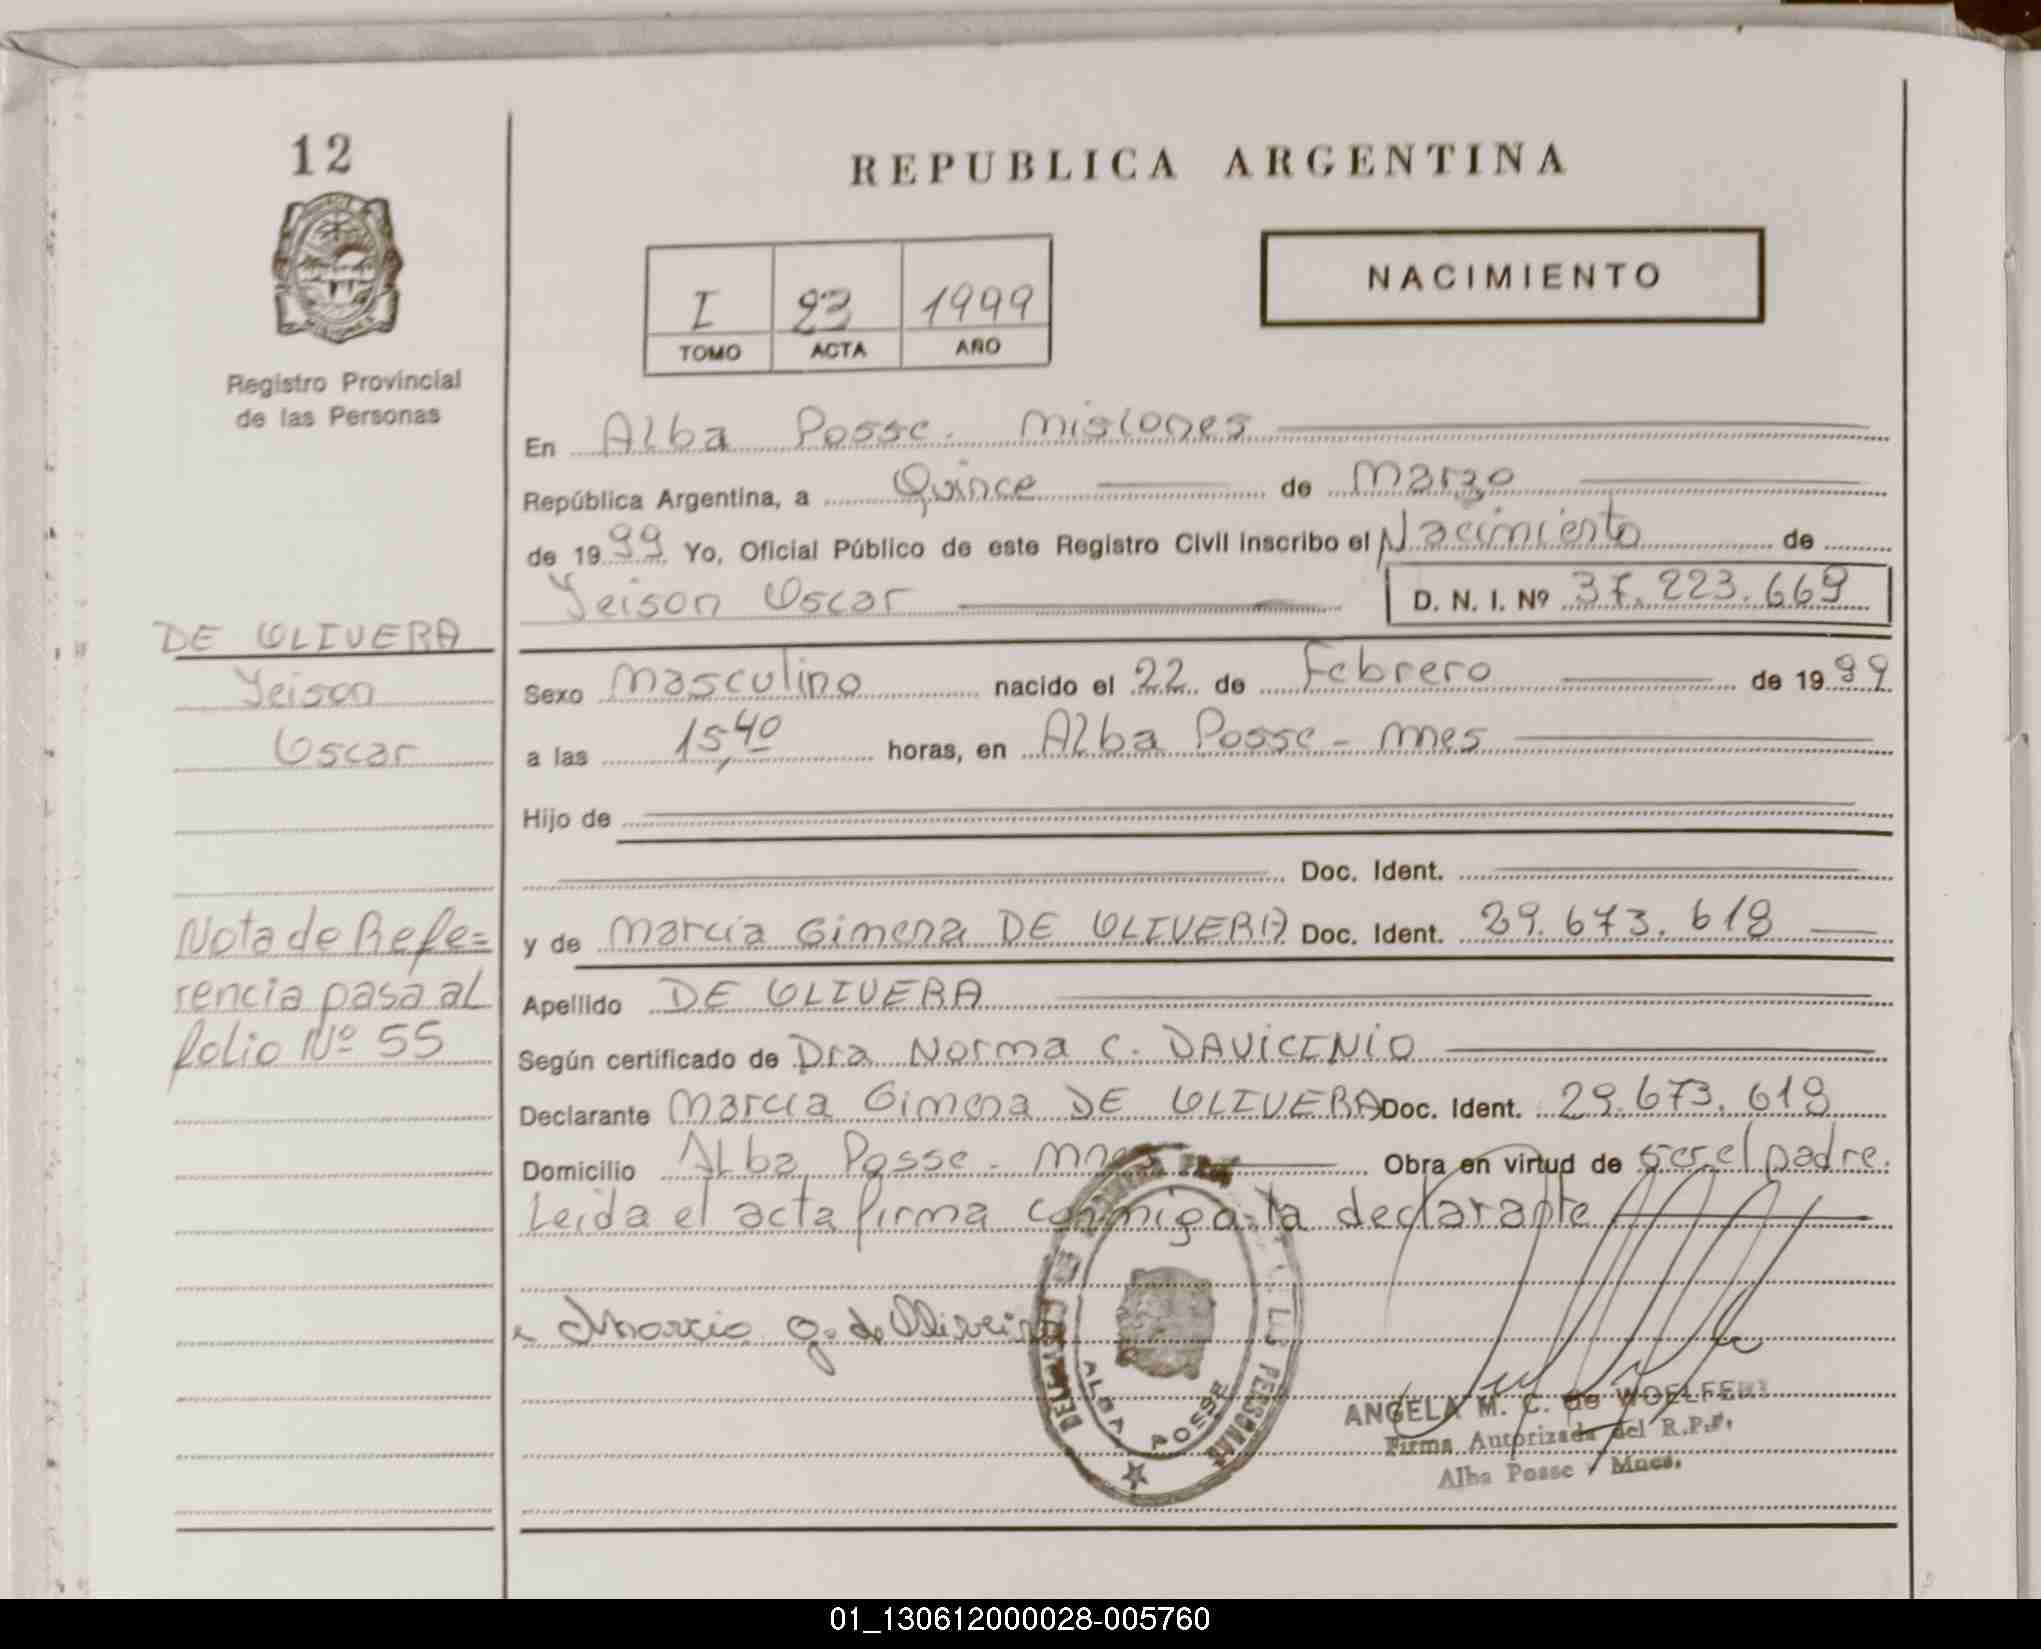 12
REPUBLICA ARGENTINA
NACIMIENTO
I 23 1999
TOMO ACTA AÑO
Registro Provincial
de las Personas
En Alba Posse. Misiones
República Argentina, a Quince de Marzo
de 1999 Yo, Oficial Público de este Registro Civil inscribo el Nacimiento de
Yeison Oscar D. N. I. Nº 37.223.669
DE OLIVERA
Yeison
Oscar
Sexo Masculino nacido el 22 de Febrero de 1999
a las 15,40 horas, en Alba Posse - Mnes
Hijo de
Doc. Ident.
Nota de Refe=
rencia pasa al
folio Nº 55
y de Marcia Gimena DE OLIVERA Doc. Ident. 29.673.618
Apellido DE OLIVERA
Según certificado de Dra Norma C. DAViCENiO
Declarante Marcia Gimena DE OLIVERA Doc. Ident. 29.673.618
Domicilio Alba Posse - Mnes Obra en virtud de ser el padre.
Leida el acta firma conmigo la declarante
Marcia G. de Oliveira
ALBA POSSE
ANGELA M. C. de WOELFERT
Firma Autorizada del R.P.P.
Alba Posse - Mnes.
01_130612000028-005760